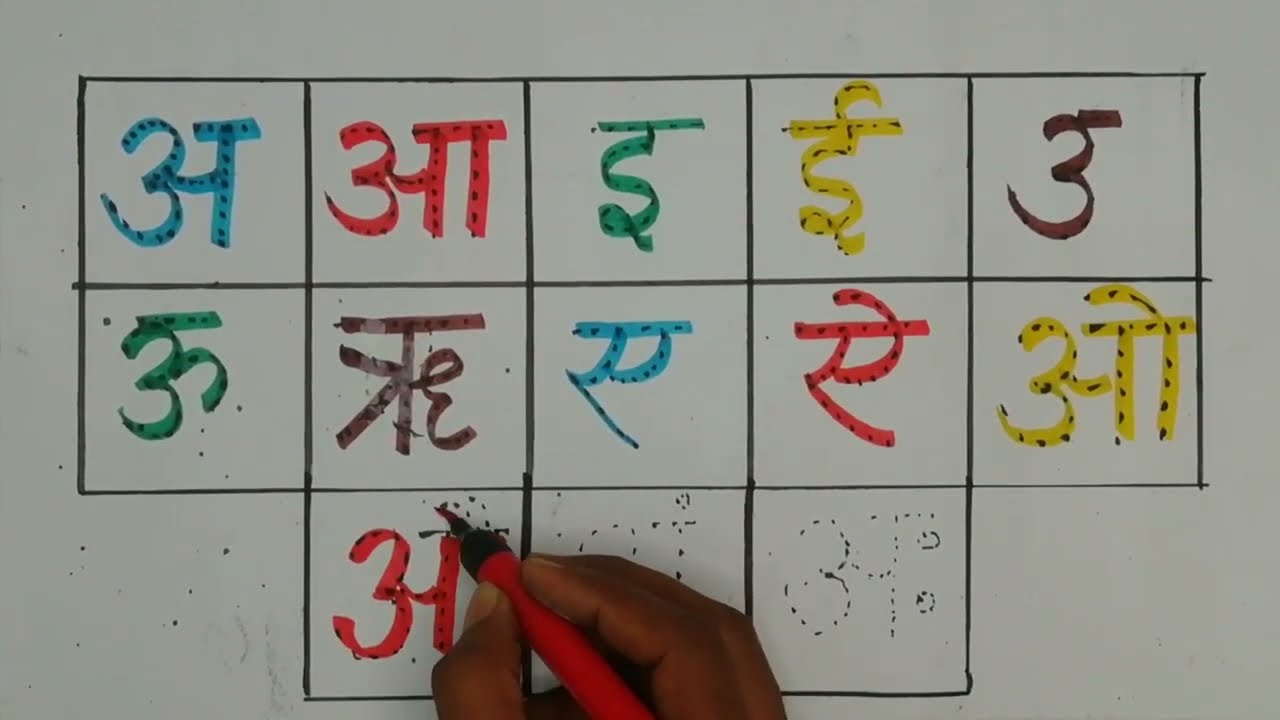 अ आ इ ई उ
ऊ ऋ ए ऐ ओ
अ अः